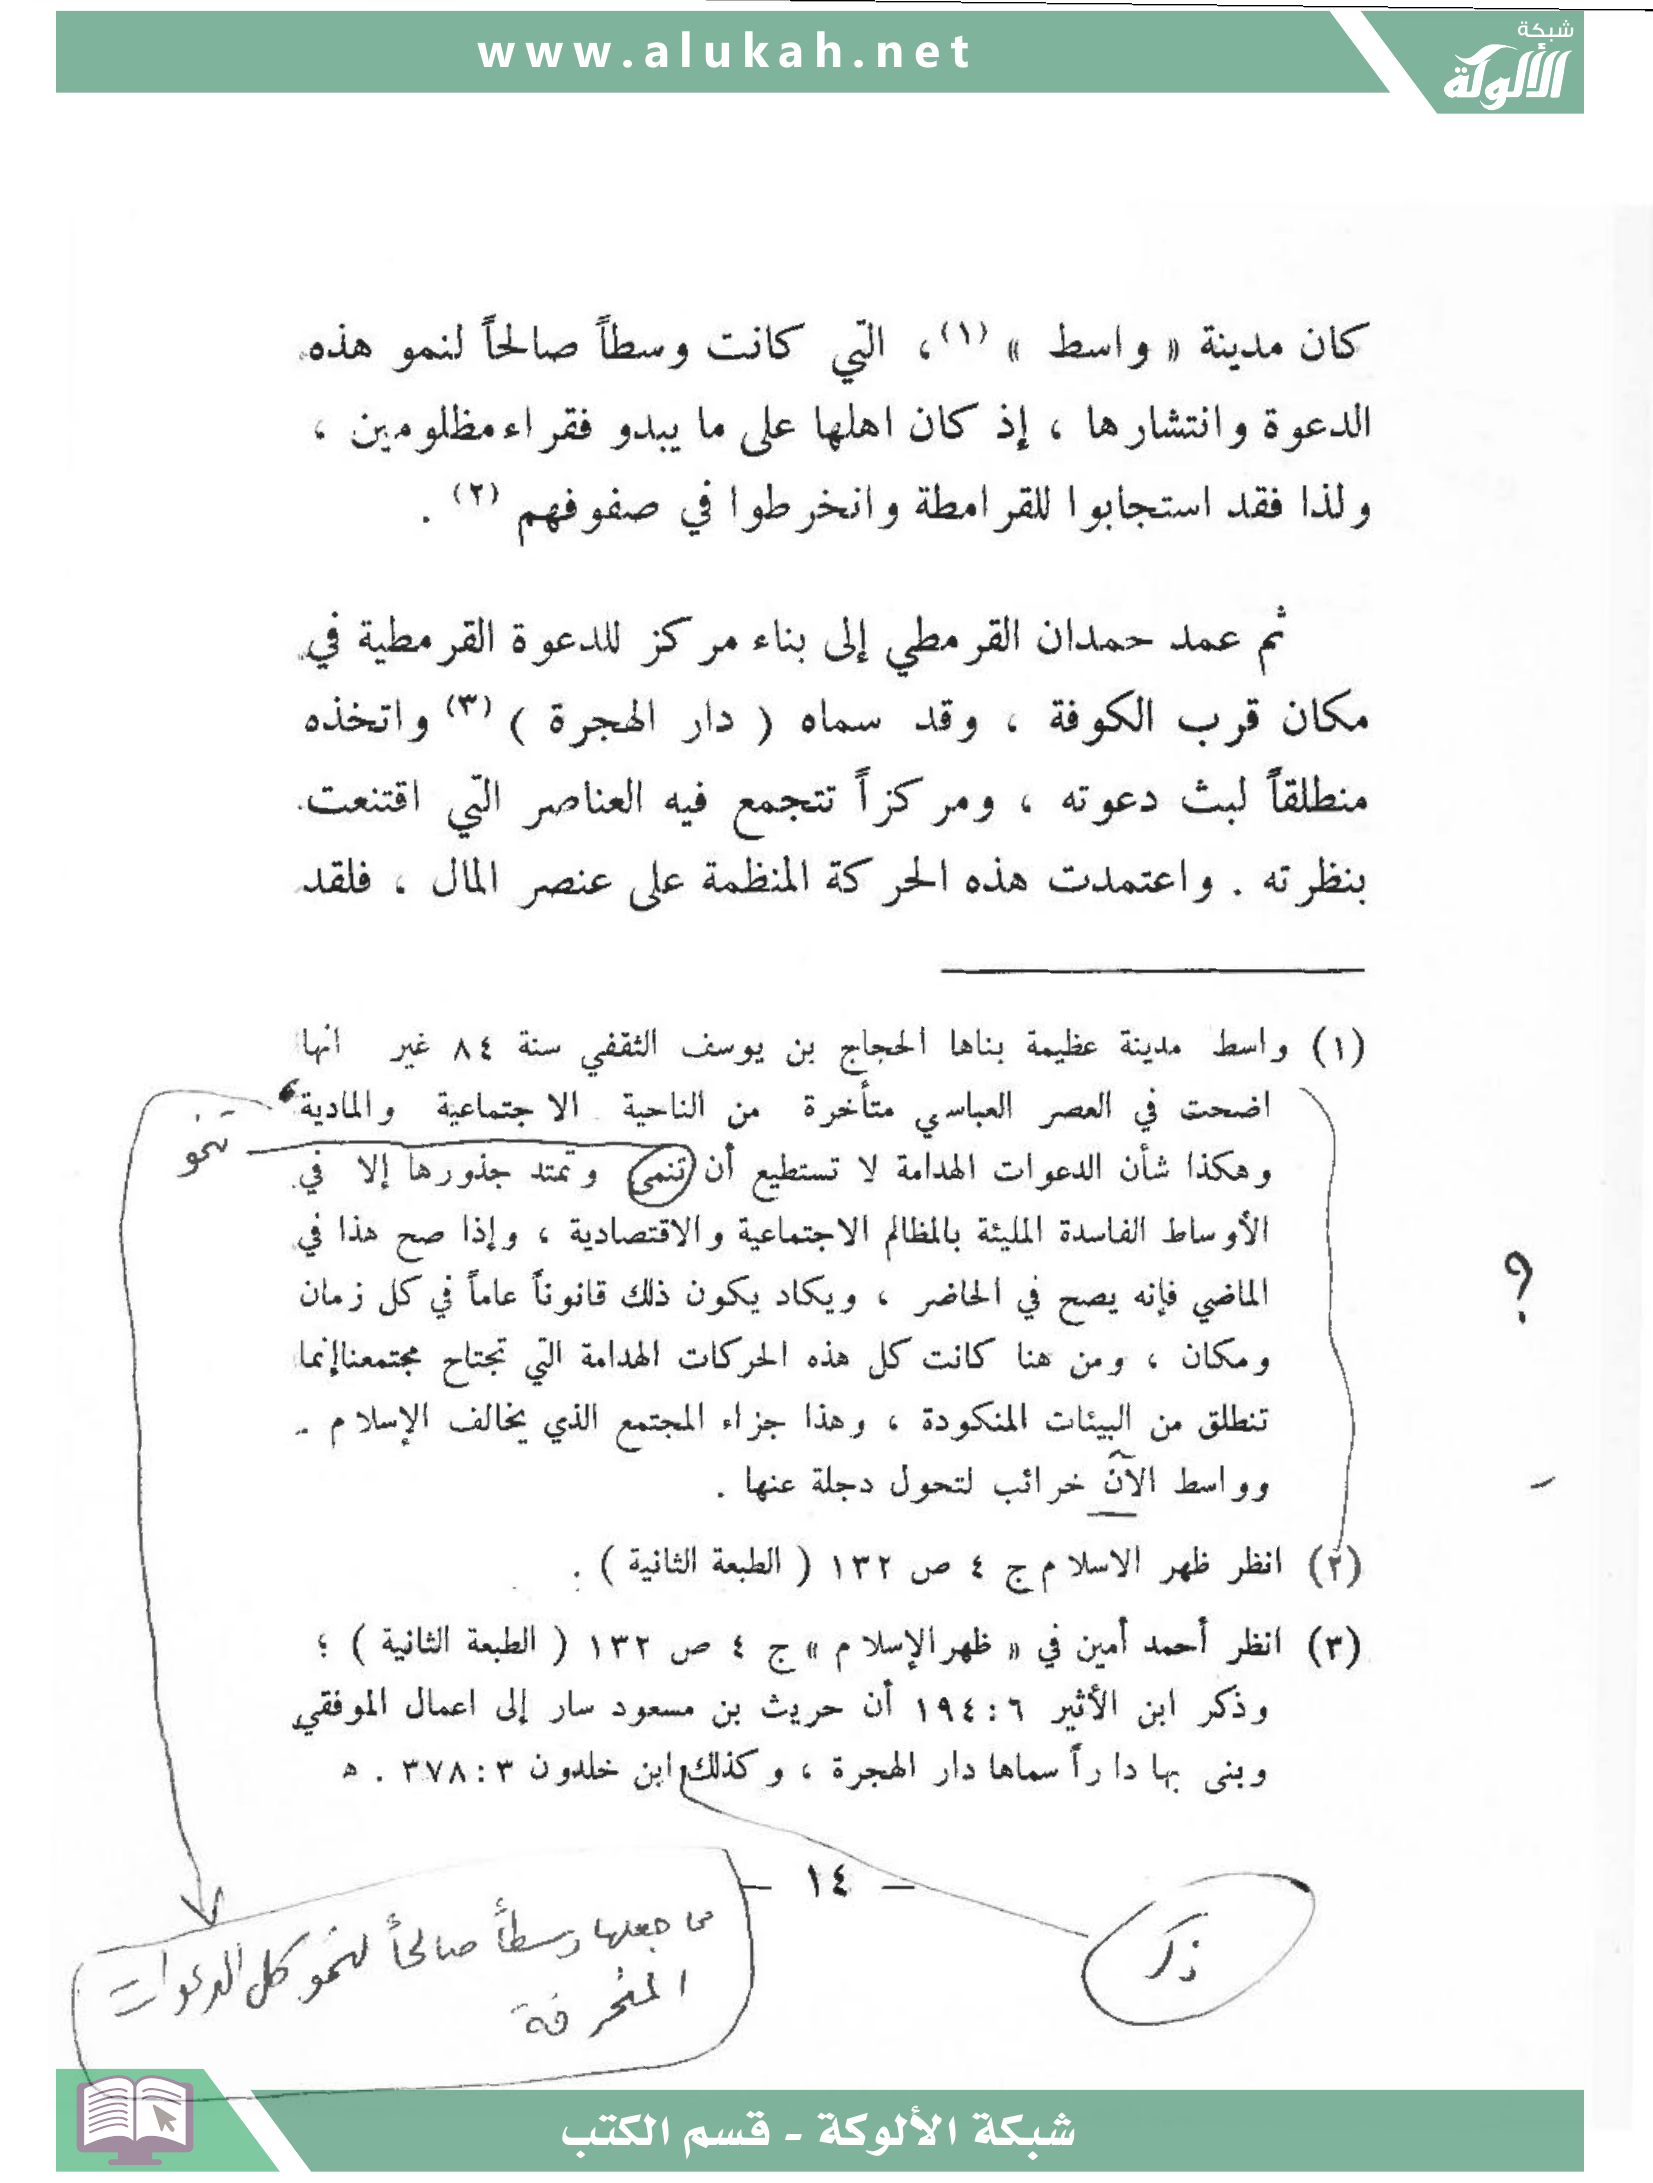 www.alukah.net
شبكة
الألوكة
كان مدينة « واسط » (١)، التي كانت وسطاً صالحاً لنمو هذه
الدعوة وانتشارها ، إذ كان اهلها على ما يبدو فقراء مظلومين ،
ولذا فقد استجابوا للقرامطة وانخرطوا في صفوفهم (٢) .
ثم عمد حمدان القرمطي إلى بناء مركز للدعوة القرمطية في
مكان قرب الكوفة ، وقد سماه ( دار الهجرة ) (٣) واتخذه
منطلقاً لبث دعوته ، ومركزاً تتجمع فيه العناصر التي اقتنعت
بنظرته . واعتمدت هذه الحركة المنظمة على عنصر المال ، فلقد
(١) واسط مدينة عظيمة بناها الحجاج بن يوسف الثقفي سنة ٨٤ غير انها
اضحت في العصر العباسي متأخرة من الناحية الاجتماعية والمادية
تنمو
وهكذا شأن الدعوات الهدامة لا تستطيع أن تنمى وتمتد جذورها إلا في
الأوساط الفاسدة المليئة بالمظالم الاجتماعية والاقتصادية ، وإذا صح هذا في
الماضي فإنه يصح في الحاضر ، ويكاد يكون ذلك قانوناً عاماً في كل زمان
؟
ومكان ، ومن هنا كانت كل هذه الحركات الهدامة التي تجتاح مجتمعنا إنما
تنطلق من البيئات المنكودة ، وهذا جزاء المجتمع الذي يخالف الإسلام .
وواسط الآن خرائب لتحول دجلة عنها .
(٢) انظر ظهر الاسلام ج ٤ ص ١٣٢ ( الطبعة الثانية ) .
(٣) انظر أحمد أمين في « ظهر الإسلام » ج ٤ ص ١٣٢ ( الطبعة الثانية ) ؛
وذكر ابن الأثير ٦ : ١٩٤ أن حريث بن مسعود سار إلى اعمال الموفقي
وبنى بها داراً سماها دار الهجرة ، وكذلك ابن خلدون ٣ : ٣٧٨ . ه
— ١٤ —
ذكر
مما جعلها وسطاً صالحاً لنمو كل الدعوات
المنحرفة
شبكة الألوكة - قسم الكتب